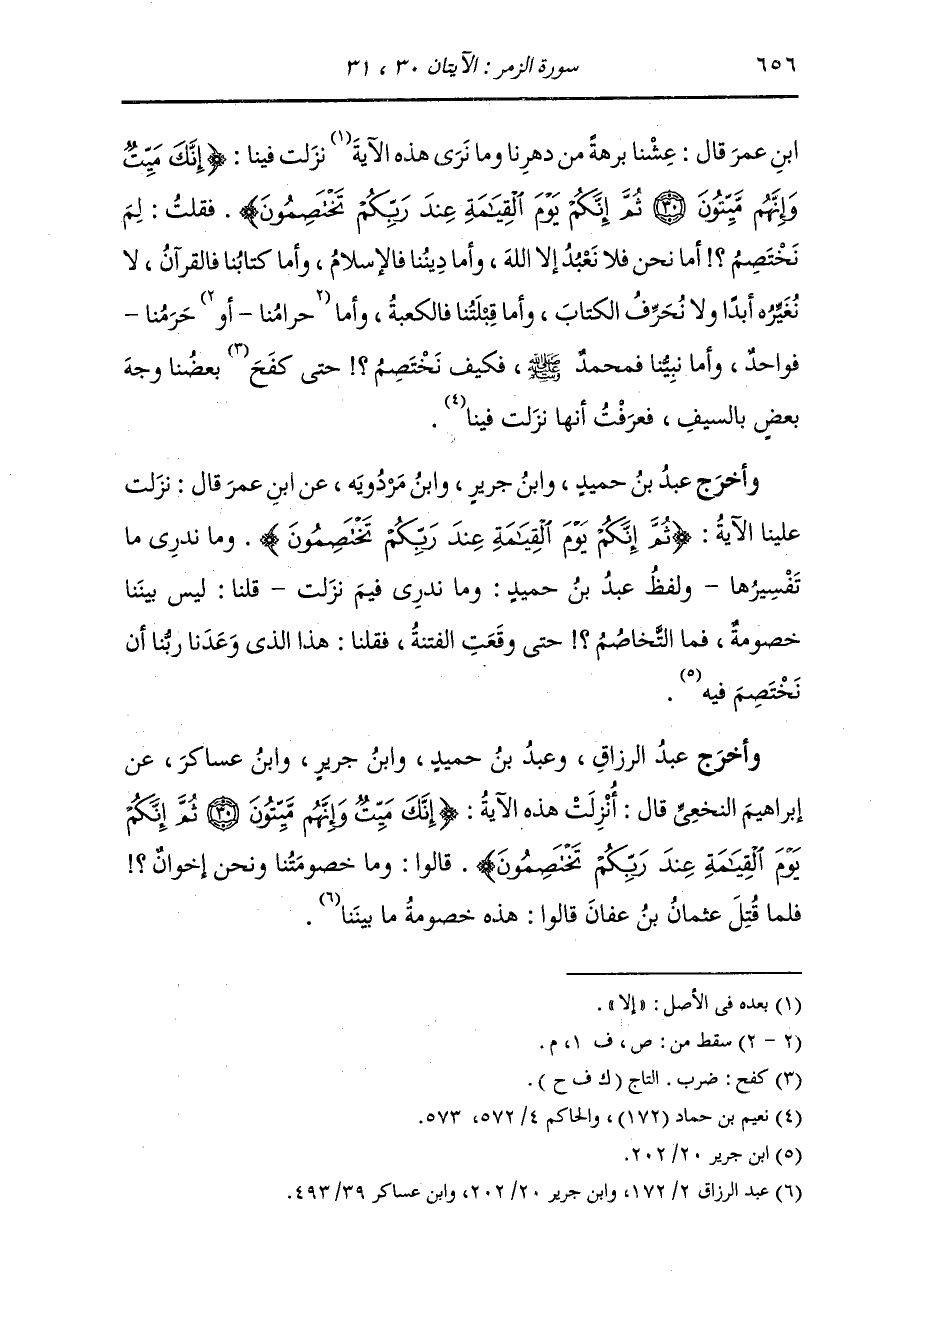 ٦٥٦ سورة الزمر : الآيتان ٣٠ ، ٣١
ابنِ عمرَ قال : عِشْنا برهةً من دهرِنا وما نَرَى هذه الآيةَ(١) نزَلت فينا : ﴿إِنَّكَ مَيِّتٌ
وَإِنَّهُم مَّيِّتُونَ ﴿٣٠﴾ ثُمَّ إِنَّكُمْ يَوْمَ ٱلْقِيَـٰمَةِ عِندَ رَبِّكُمْ تَخْتَصِمُونَ﴾ . فقلتُ : لِمَ
نَخْتَصِمُ ؟! أما نحن فلا نَعْبُدُ إلا اللهَ ، وأما دِينُنا فالإسلامُ ، وأما كتابُنا فالقرآنُ ، لا
نُغَيِّرُه أبدًا ولا نُحَرِّفُ الكتابَ ، وأما قِبْلَتُنا فالكعبةُ ، وأما (٢حرامُنا – أو٢) حَرَمُنا –
فواحدٌ ، وأما نبيُّنا فمحمدٌ ﷺ ، فكيف نَخْتَصِمُ ؟! حتى كفَحَ(٣) بعضُنا وجهَ
بعضٍ بالسيفِ ، فعرَفْتُ أنها نزَلت فينا(٤) .
وأخرَج عبدُ بنُ حميدٍ ، وابنُ جريرٍ ، وابنُ مَرْدُويَه ، عن ابنِ عمرَ قال : نزَلت
علينا الآيةُ : ﴿ثُمَّ إِنَّكُمْ يَوْمَ ٱلْقِيَـٰمَةِ عِندَ رَبِّكُمْ تَخْتَصِمُونَ﴾ . وما ندرِى ما
تَفْسِيرُها – ولفظُ عبدُ بنُ حميدٍ : وما ندرِى فيمَ نزَلت – قلنا : ليس بينَنا
خصومةٌ ، فما التَّخاصُمُ ؟! حتى وقَعَتِ الفتنةُ ، فقلنا : هذا الذى وَعَدَنا ربُّنا أن
نَخْتَصِمَ فيه(٥) .
وأخرَج عبدُ الرزاقِ ، وعبدُ بنُ حميدٍ ، وابنُ جريرٍ ، وابنُ عساكرَ ، عن
إبراهيمَ النخعىِّ قال : أُنْزِلَتْ هذه الآيةُ : ﴿إِنَّكَ مَيِّتٌ وَإِنَّهُم مَّيِّتُونَ ﴿٣٠﴾ ثُمَّ إِنَّكُمْ
يَوْمَ ٱلْقِيَـٰمَةِ عِندَ رَبِّكُمْ تَخْتَصِمُونَ﴾ . قالوا : وما خصومَتُنا ونحن إخوانٌ ؟!
فلما قُتِلَ عثمانُ بنُ عفانَ قالوا : هذه خصومةُ ما بينَنا(٦) .
(١) بعده فى الأصل : «إلا» .
(٢ – ٢) سقط من : ص ، ف ١، م .
(٣) كفح : ضرب . التاج (ك ف ح ) .
(٤) نعيم بن حماد (١٧٢) ، والحاكم ٤/ ٥٧٢، ٥٧٣.
(٥) ابن جرير ٢٠/ ٢٠٢.
(٦) عبد الرزاق ٢/ ١٧٢، وابن جرير ٢٠/ ٢٠٢، وابن عساكر ٣٩/ ٤٩٣.